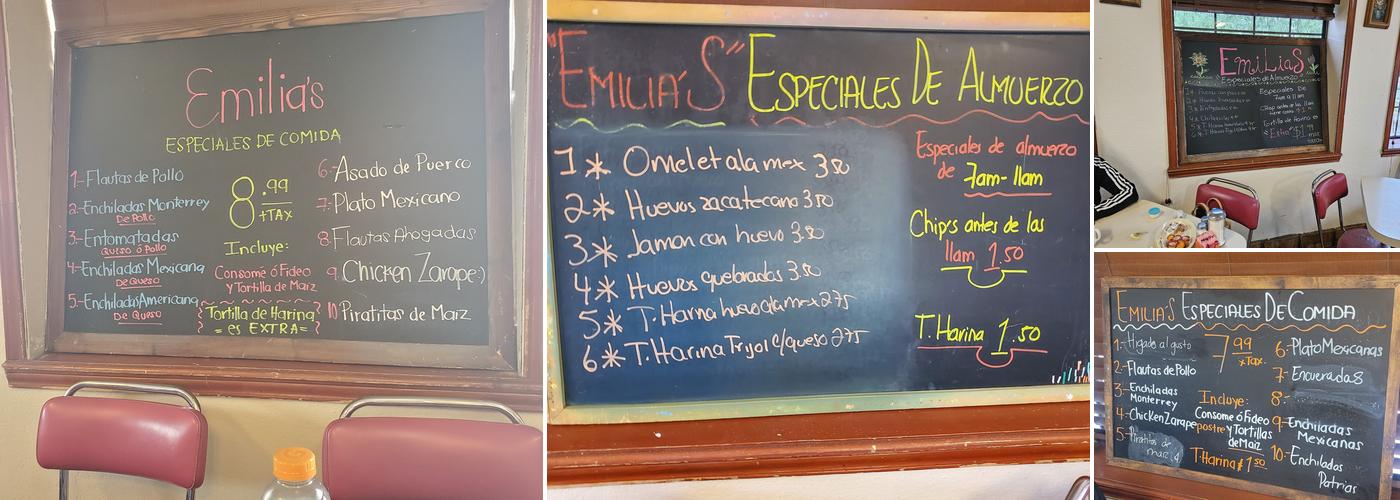 Emilia's
ESPECIALES DE COMIDA
1-Flautas de Pollo
2-Enchiladas Monterrey
De Pollo
3-Entomatadas
Queso ó Pollo
4-Enchiladas Mexicana
De Queso
5-Enchiladas Americana
De Queso
8.99
+TAX
Incluye:
Consomé ó Fideo
y Tortilla de Maiz
Tortilla de Harina
= es EXTRA =
6-Asado de Puerco
7-Plato Mexicano
8-Flautas Ahogadas
9-Chicken Zarape:)
10-Piratitas de Maiz
"EMILIA'S" ESPECIALES DE ALMUERZO
1* Omelet ala mex 3.50
2* Huevos zacatecano 3.50
3* Jamon con huevo 3.50
4* Huevos quebrados 3.50
5* T. Harina huevo ala mex 2.75
6* T. Harina Frijol c/queso 2.75
Especiales de almuerzo
de 7am-11am
Chip's antes de las
11am 1.50
T. Harina 1.50
EmiLiaS
Especiales de Almuerzo
Especiales De
7am a 11am
Tortilla de Harina es
"Extra" $1.99
EMILIA'S ESPECIALES DE COMIDA
1-Higado al gusto
2-Flautas de Pollo
3-Enchiladas
Monterrey
4-Chicken Zarape
5-Piratitas de
maiz
7.99
+Tax
Incluye:
Consome ó Fideo
postre y Tortillas
de Maiz
T-Harina $1.50
6-Plato Mexicanas
7-Encueradas
8-
9-Enchiladas
Mexicanas
10-Enchiladas
Patrias